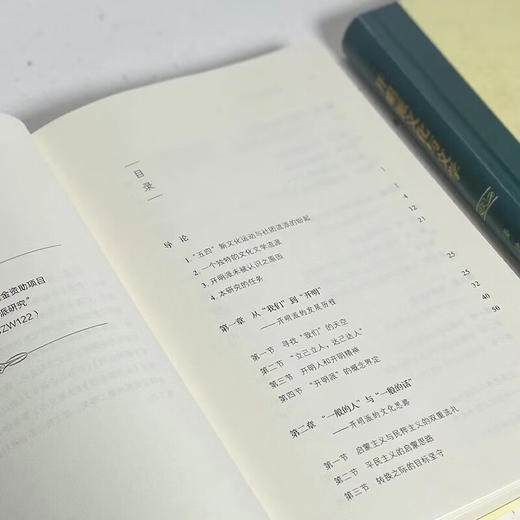 目录
导 论
1. “五四”新文化运动与社团流派的纷起 1
2. 一个独特的文化文学流派 4
3. 开明派未被认识之原因 12
4. 本研究的任务 21
第一章 从“我们”到“开明”
——开明派的发展历程 25
第一节 寻找“我们”的天空 25
第二节 “立己立人，达己达人” 32
第三节 开明人和开明精神 40
第四节 “开明派”的概念界定 50
第二章 “一般的人”与“一般的话”
——开明派的文化思路
第一节 启蒙主义与民粹主义的双重洗礼
第二节 平民主义的启蒙思路
第三节 转换之际的目标坚守
金资助项目
派研究”
ZW122）
开明派文化与文学